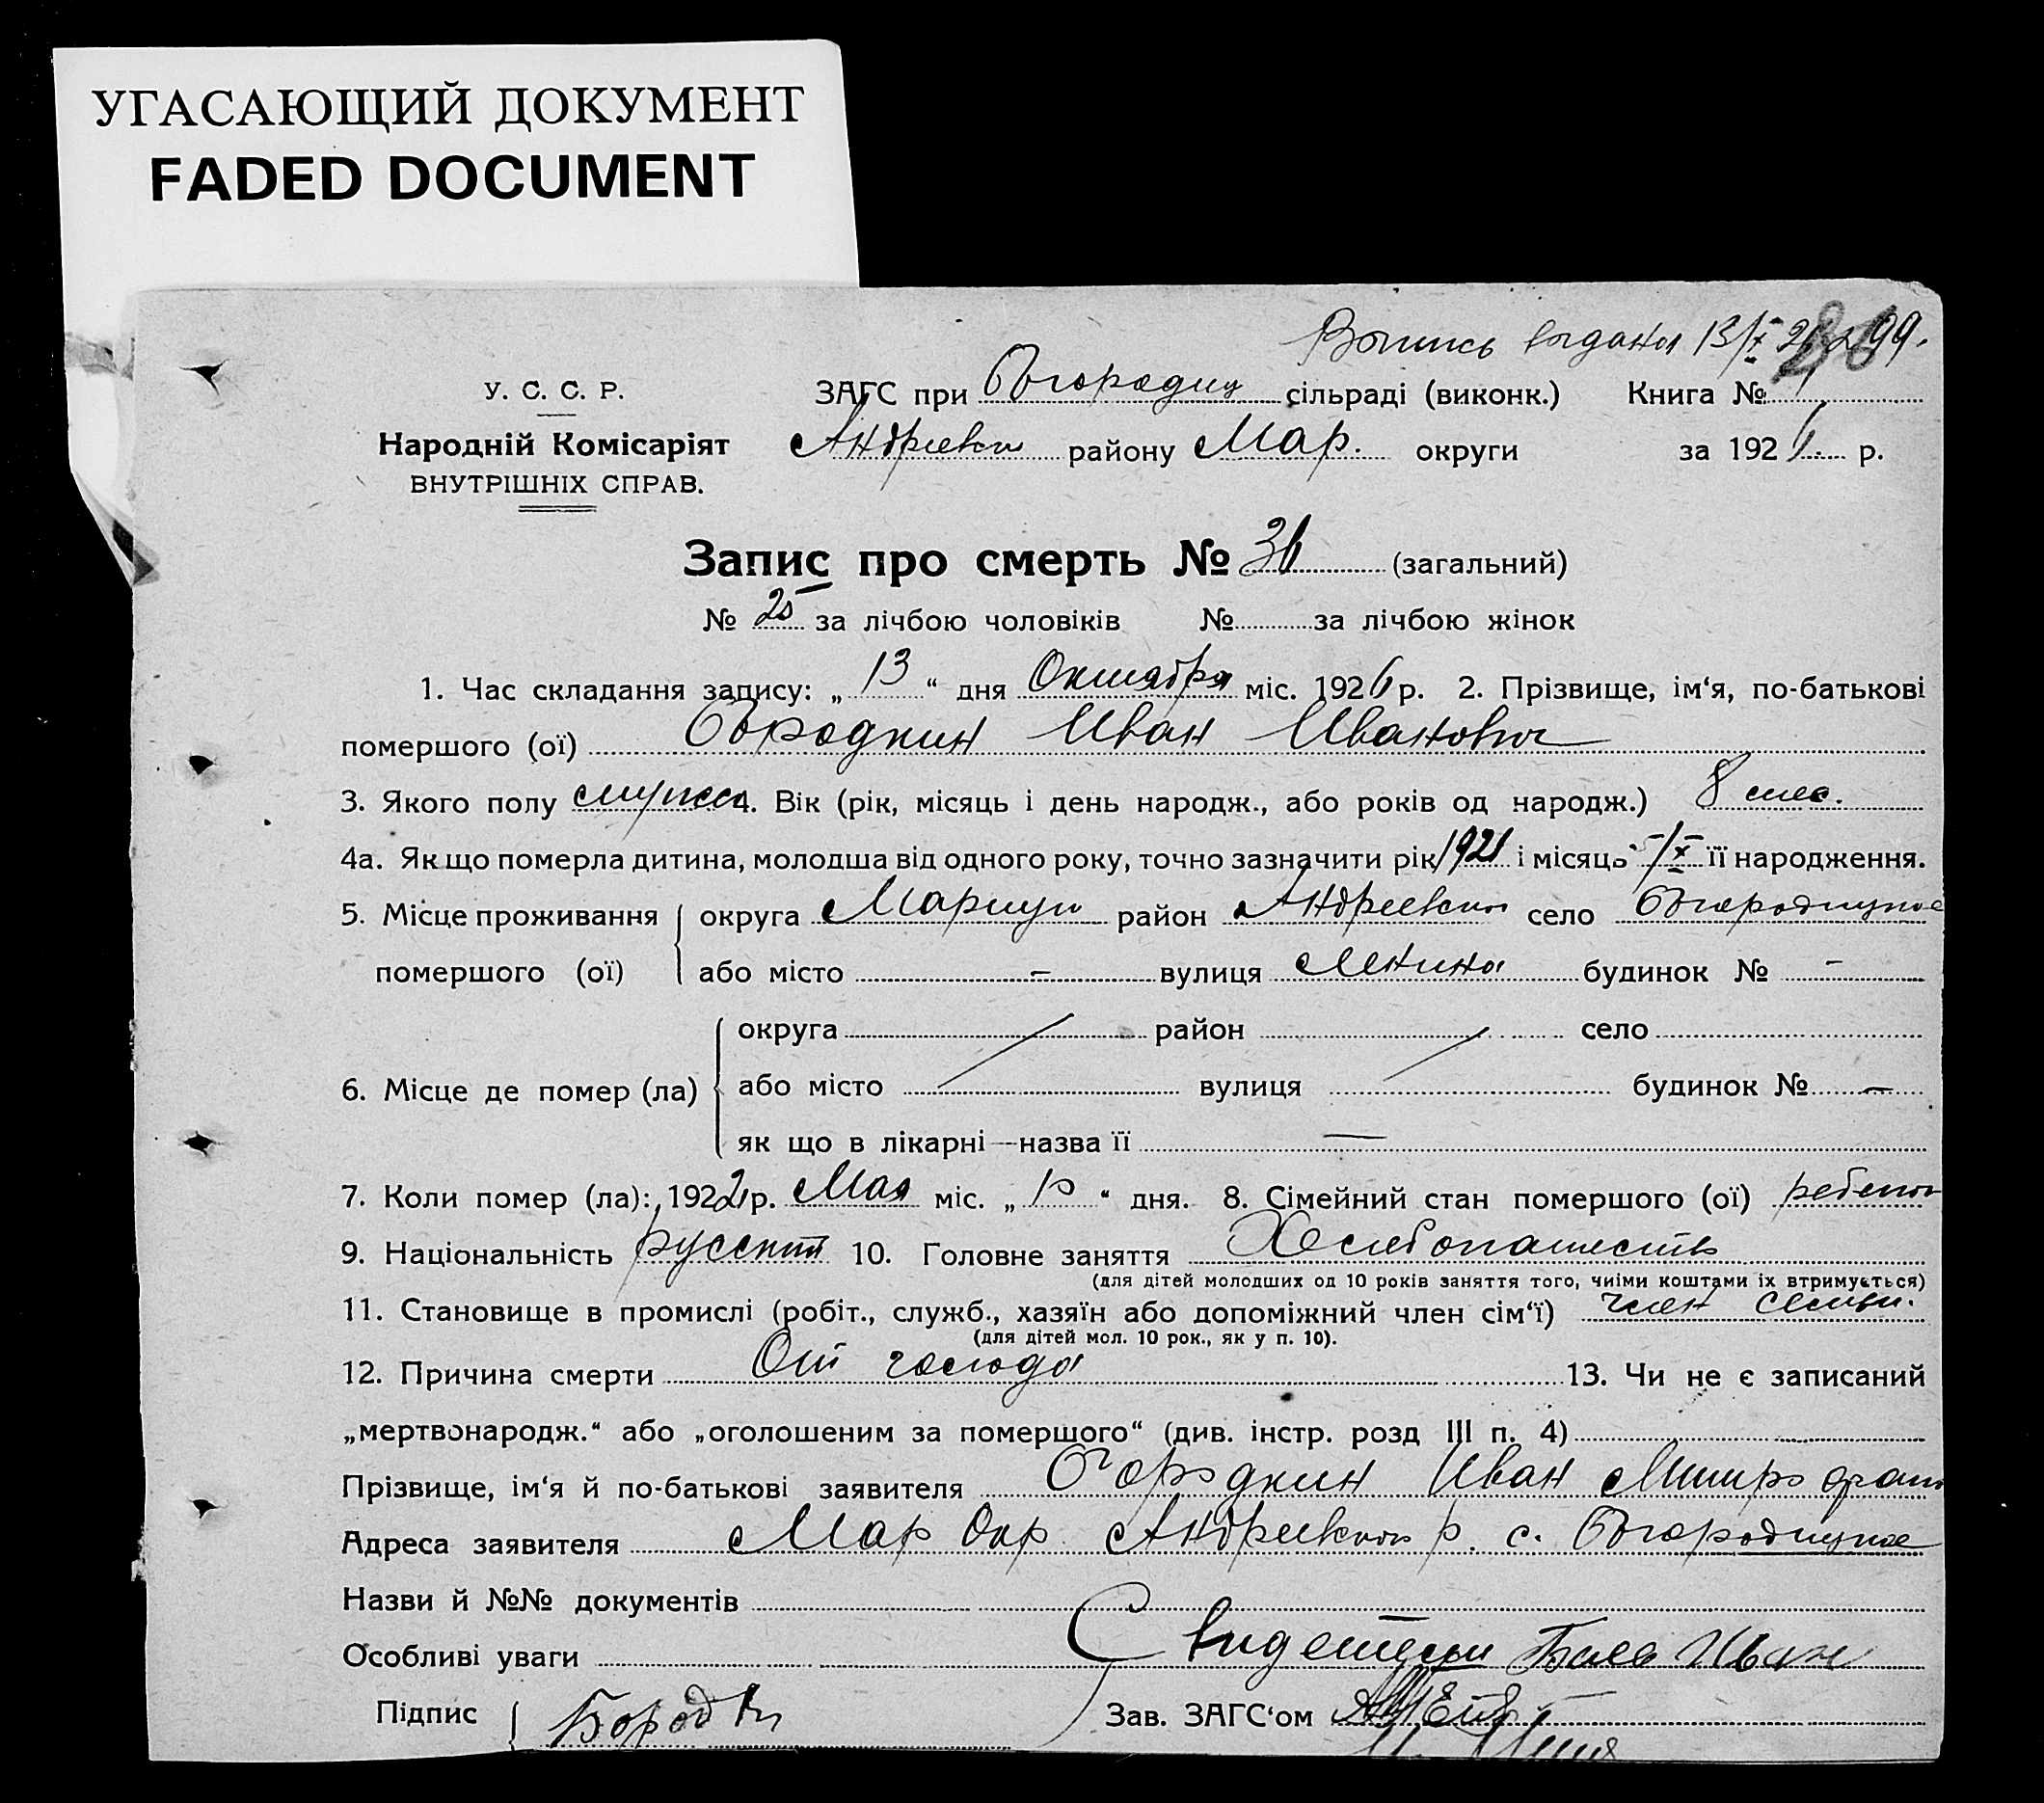 УГАСАЮЩИЙ ДОКУМЕНТ
FADED DOCUMENT
Выпись выдана 13/X 26 99.
У. С. С. Р. ЗАГС при сільраді (виконк.) Книга №
Народній Комісаріят Андреевск району Мар. округи за 1926 р.
ВНУТРІШНІХ СПРАВ.
Запис про смерть № 36 (загальний)
№ 25 за лічбою чоловіків № за лічбою жінок
1. Час складання запису: „ 13 “ дня Октября міс. 1926 р. 2. Прізвище, ім‘я, по-батькові
помершого (ої) Иван Иванович
3. Якого полу мужск 4. Вік (рік, місяць і день народж., або років од народж.) 8 мес.
4а. Як що померла дитина, молодша від одного року, точно зазначити рік 1921 і місяць 5/X її народження.
5. Місце проживання округа Мариуп район Андреевский село
помершого (ої) або місто – вулиця Ленина будинок № –
округа район село
6. Місце де помер (ла) або місто вулиця будинок № –
як що в лікарні—назва її —
7. Коли помер (ла): 1922 р. Мая міс. „ “ дня. 8. Сімейний стан помершого (ої) ребенок
9. Національність русский 10. Головне заняття Хлебопашеств
(для дітей молодших од 10 років заняття того, чиїми коштами їх втримується)
11. Становище в промислі (робіт., служб., хазяїн або допоміжний член сім‘ї) член семьи.
(для дітей мол. 10 рок., як у п. 10).
12. Причина смерти От голода 13. Чи не є записаний
„мертвонародж.“ або „оголошеним за помершого“ (див. інстр. розд III п. 4)
Прізвище, ім‘я й по-батькові заявителя Иван Митрофан
Адреса заявителя Мар Окр Андреевского р. с.
Назви й №№ документів
Особливі уваги Свидетели Иван
Підпис Зав. ЗАГС‘ом